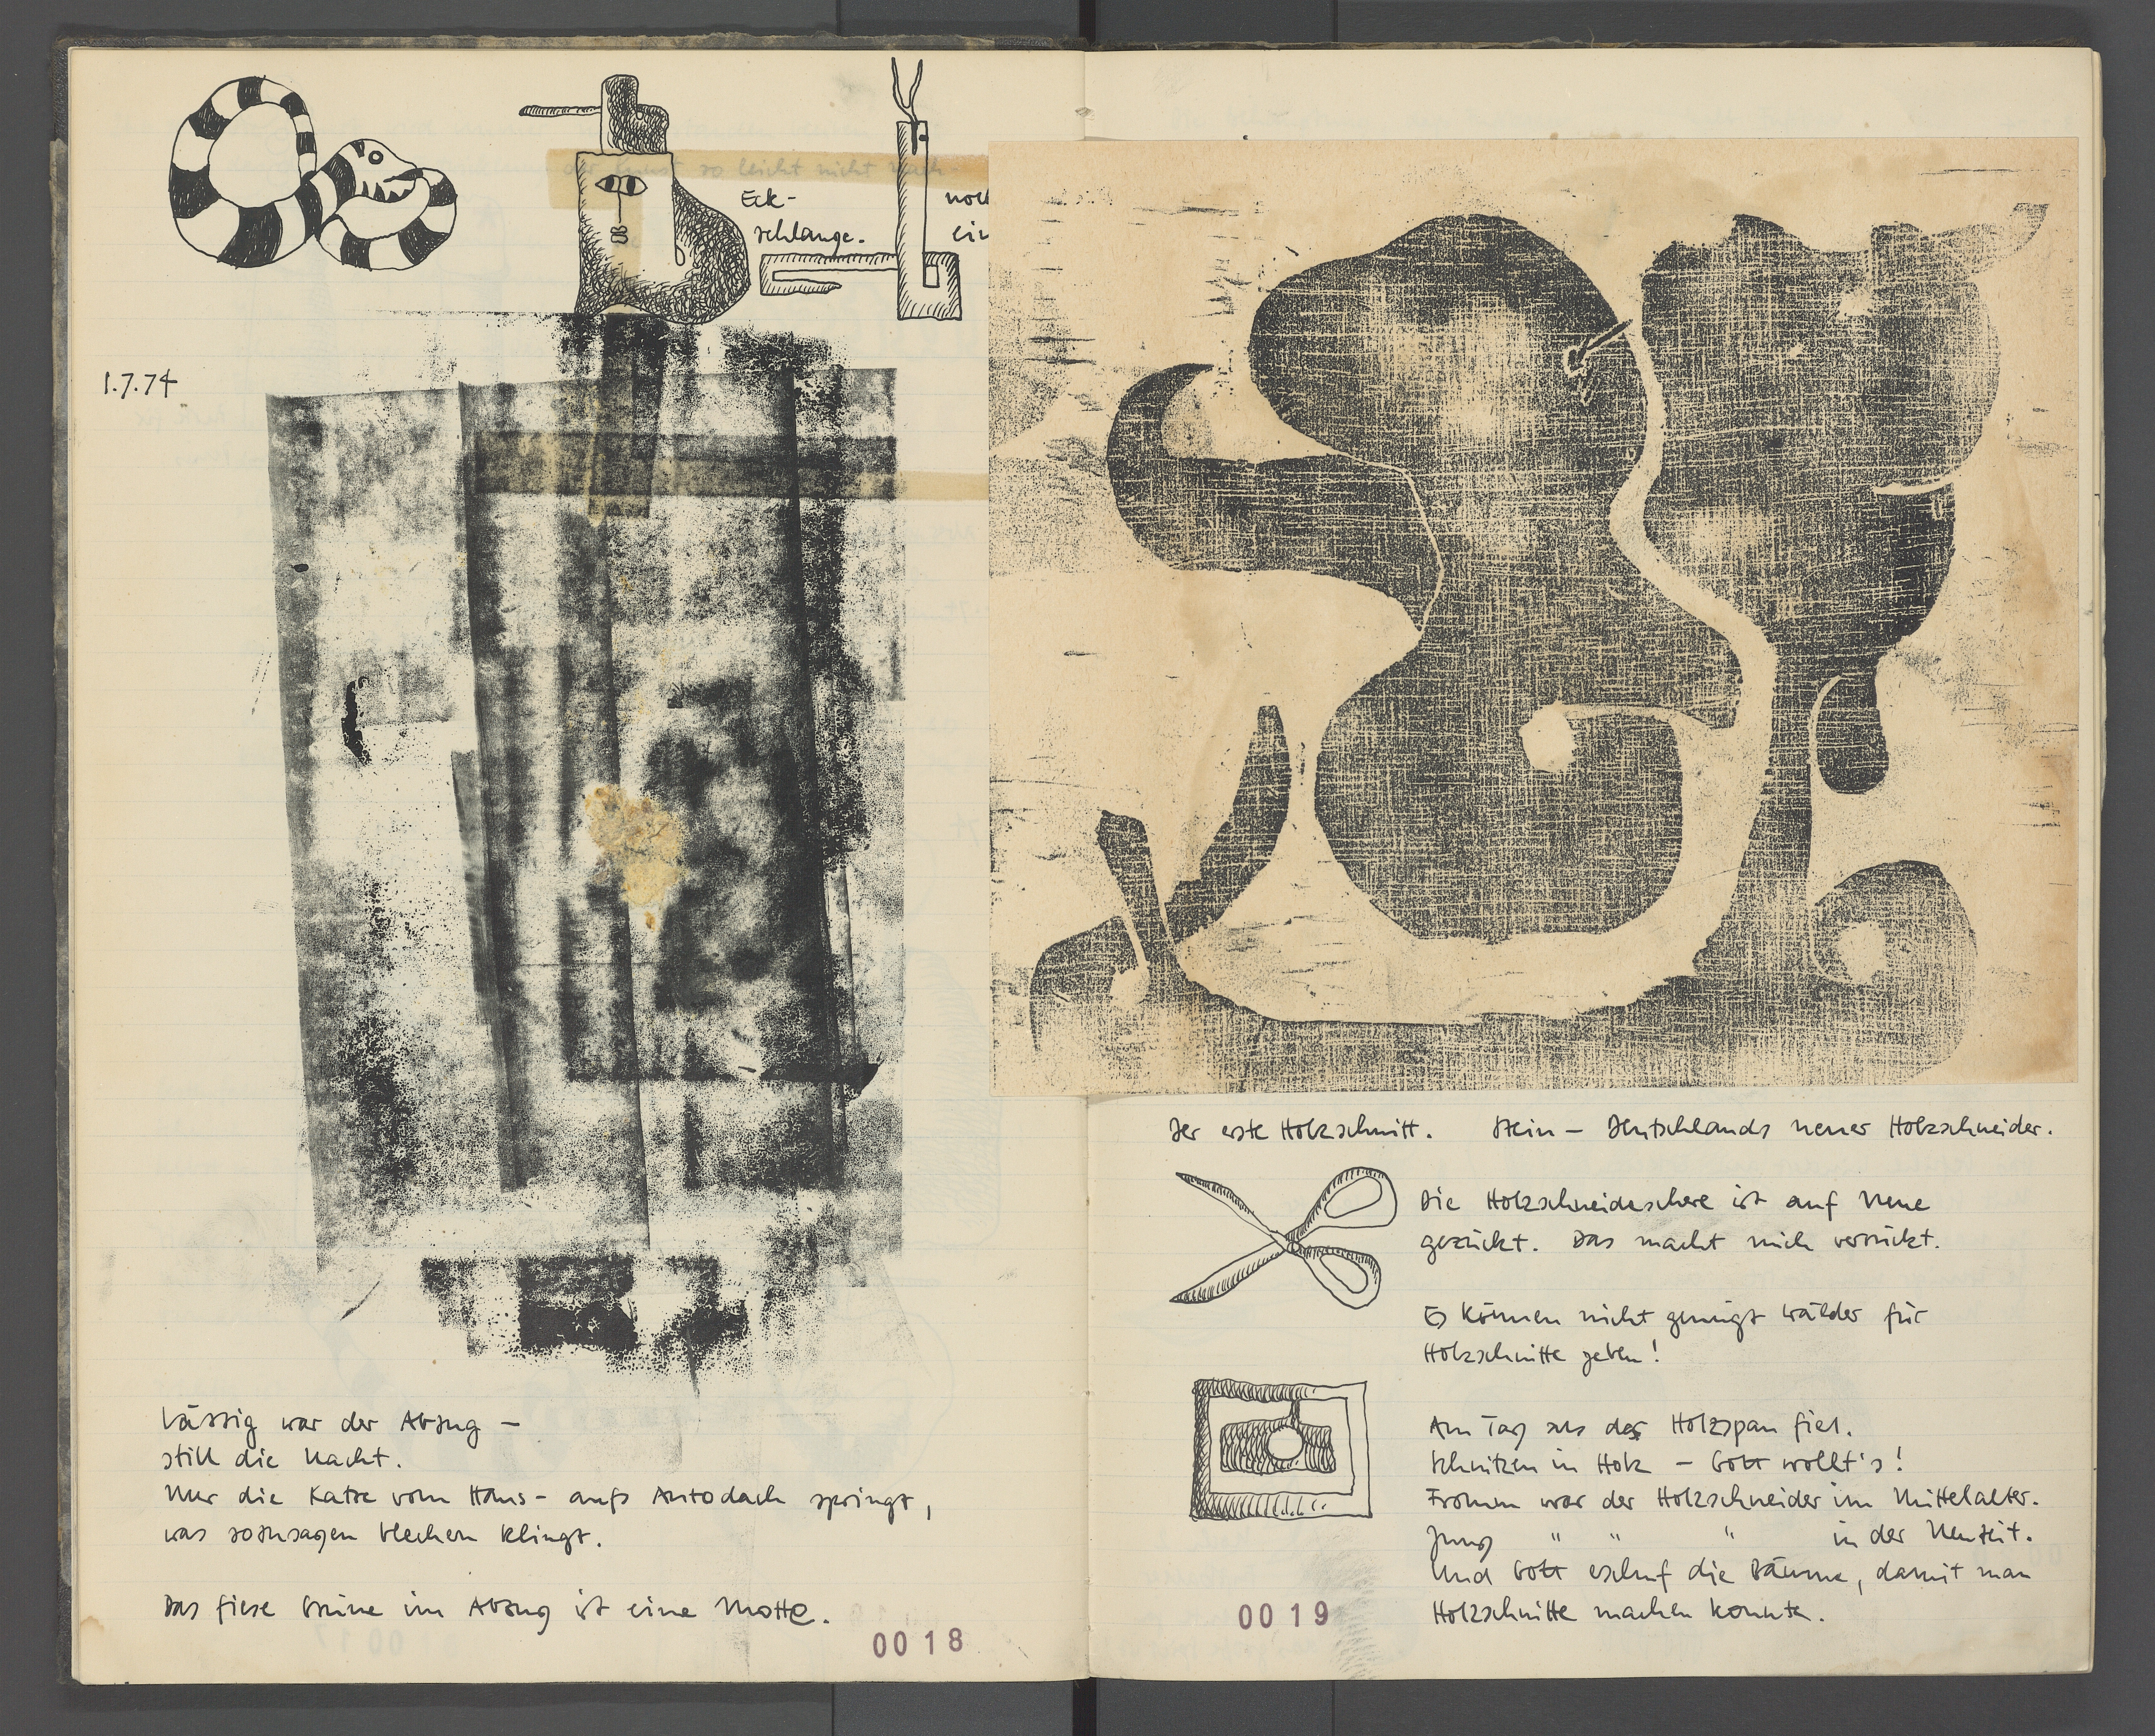 Eck-
schlange.
noch
ein
1.7.74
Lässig war der Abzug –
still die Nacht.
Nur die Katze vom Haus- aufs Autodach springt,
was sozusagen blechern klingt.
Das fiese Grüne im Abzug ist eine Motte.
0018
Der erste Holzschnitt. Stein – Deutschlands neuer Holzschneider.
Die Holzschneideschere ist auf Neue
gezückt. Das macht mich verrückt.
Es können nicht genügt Wälder für
Holzschnitte geben!
Am Tag als der Holzspan fiel.
Schnitzen in Holz – Gott wollt's!
Fromm war der Holzschneider im Mittelalter.
Jung " " " in der Neuzeit.
Und Gott erschuf die Bäume, damit man
Holzschnitte machen konnte.
0019